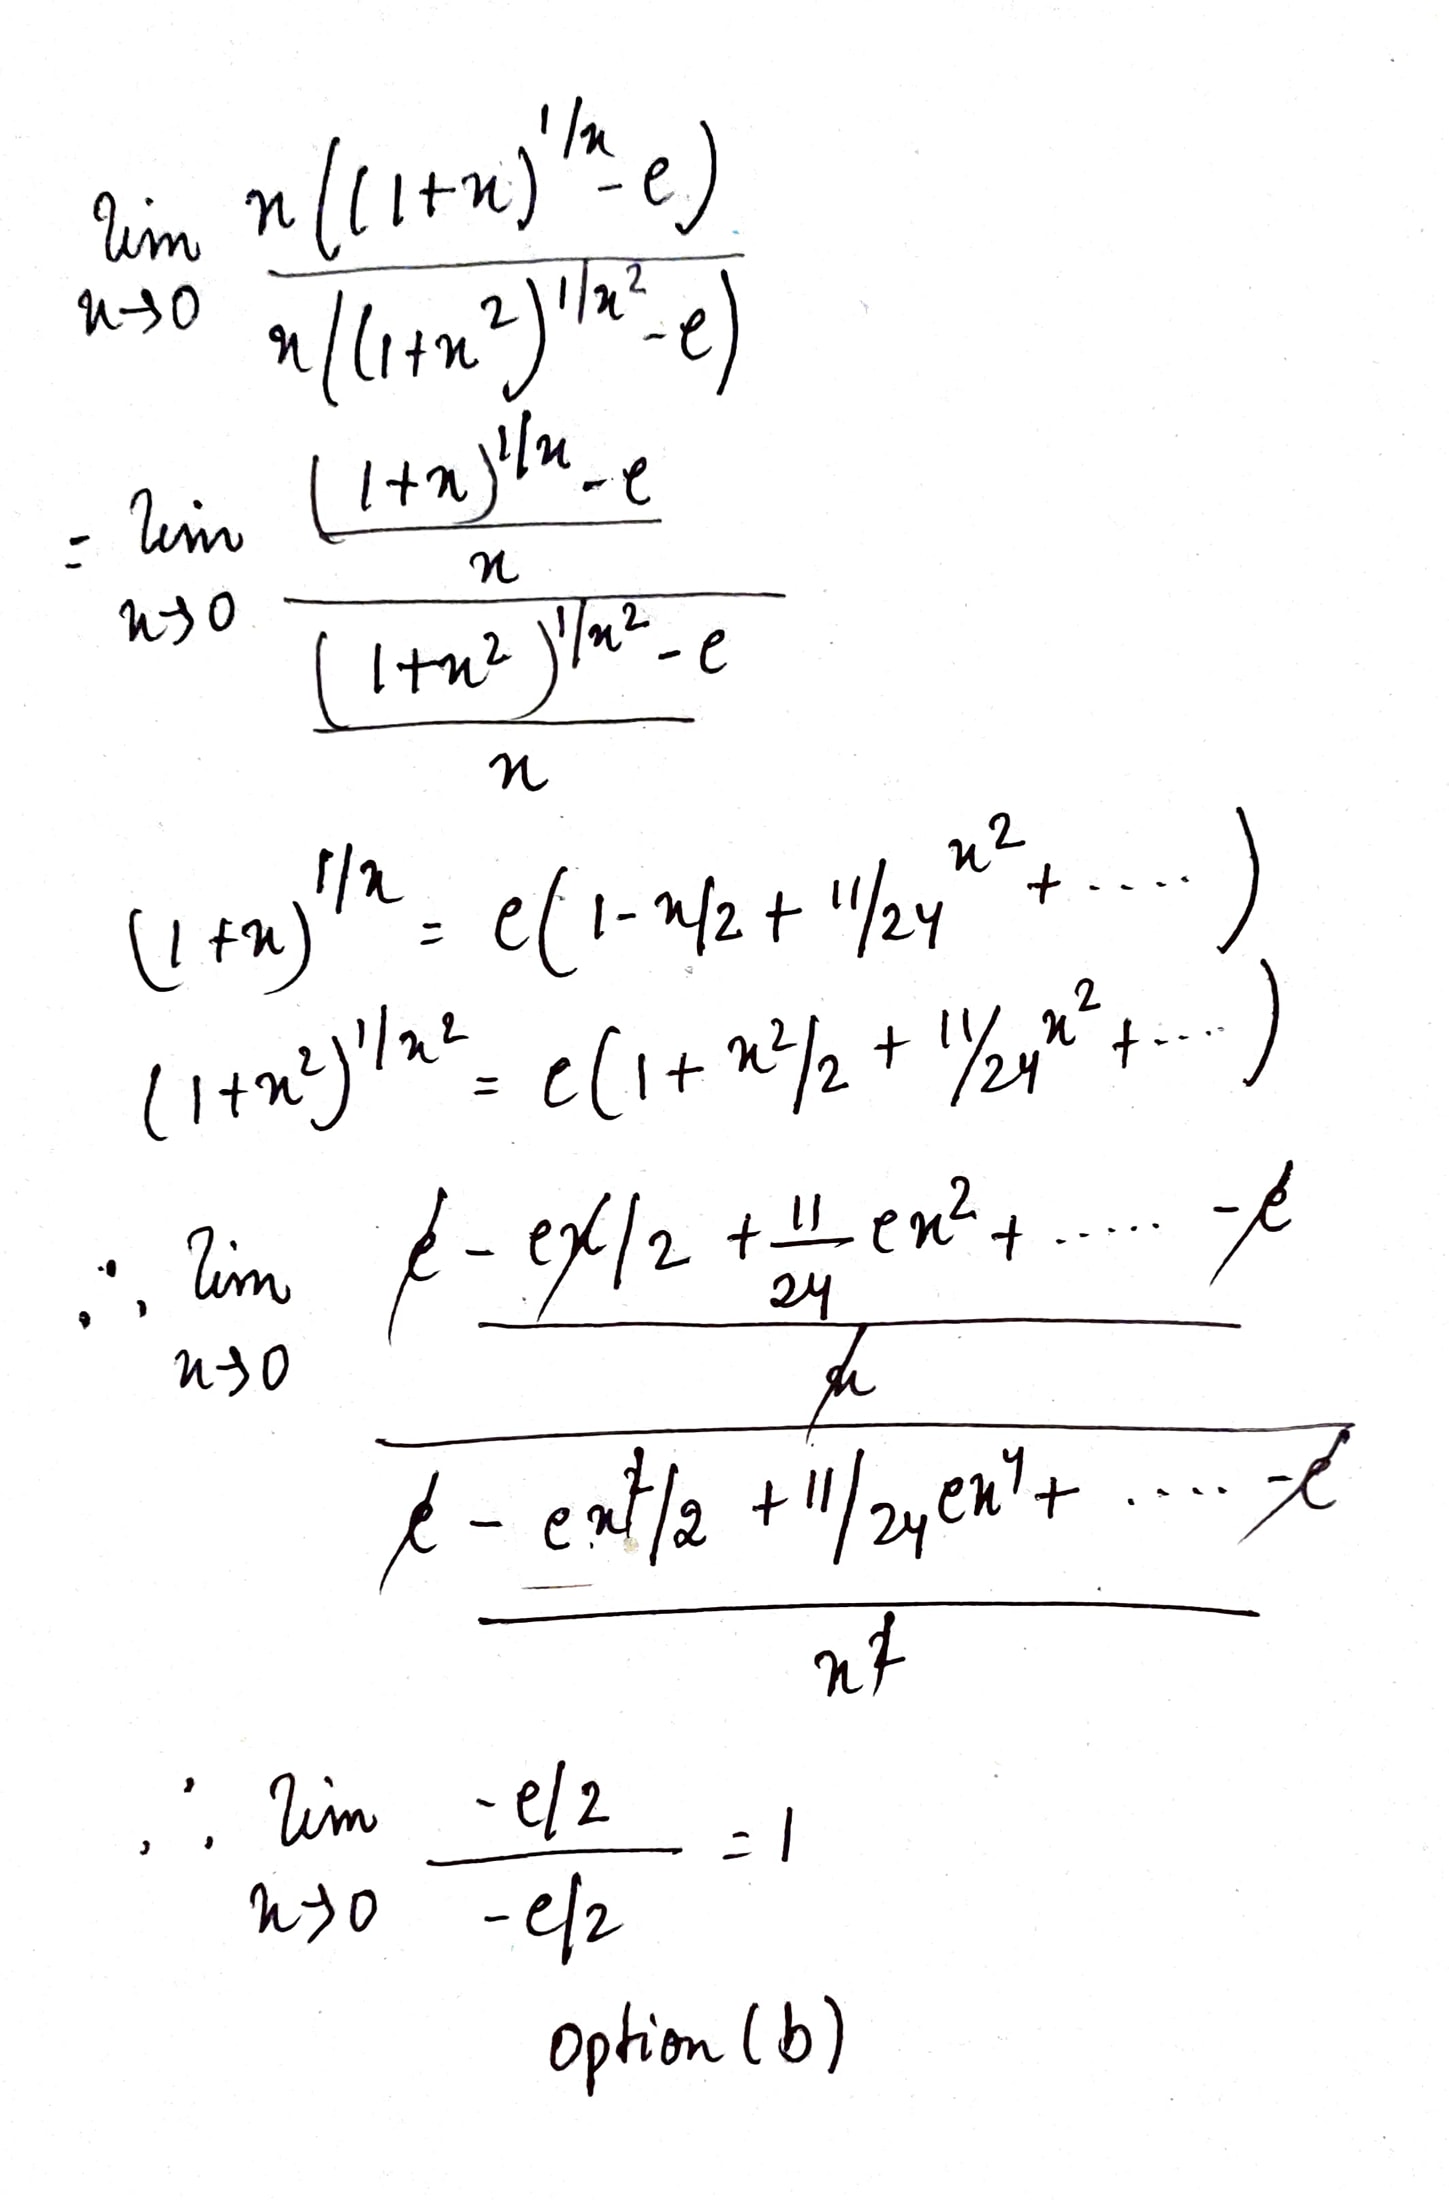 lim x→0 x((1+x)^{1/x} - e) / x((1+x^2)^{1/x^2} - e)
= lim x→0 (((1+x)^{1/x} - e) / x) / (((1+x^2)^{1/x^2} - e) / x)
(1+x)^{1/x} = e(1 - x/2 + 11/24 x^2 + .....)
(1+x^2)^{1/x^2} = e(1 + x^2/2 + 11/24 x^2 + .....)
∴ lim x→0 ((e - ex/2 + 11/24 ex^2 + ..... - e) / x) / ((e - ex^2/2 + 11/24 ex^4 + ..... - e) / x^2)
∴ lim x→0 (-e/2) / (-e/2) = 1
option (b)